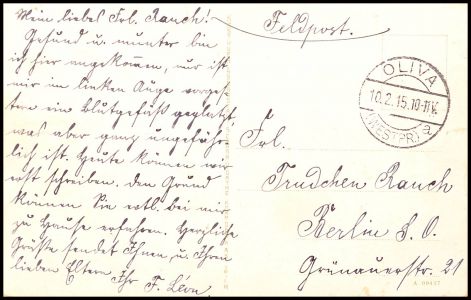 Mein liebes Frl. Rauch!
Gesund u. munter bin
ich hier angekommen, nur ist
mir im linken Auge vorges-
tern ein Blutgefäß geplatzt,
was aber ganz ungefähr-
lich ist. Heute können wir
erst schreiben. Den Grund
können Sie evtl. bei mir
zu Hause erfahren. Herzliche
Grüße sendet Ihnen u. Ihren
lieben Eltern Ihr F. Léon.
Feldpost.
OLIVA
10.2.15.10-11V.
(WESTPR.) a
Frl.
Trudchen Rauch
Berlin S. O.
Grünauerstr. 21